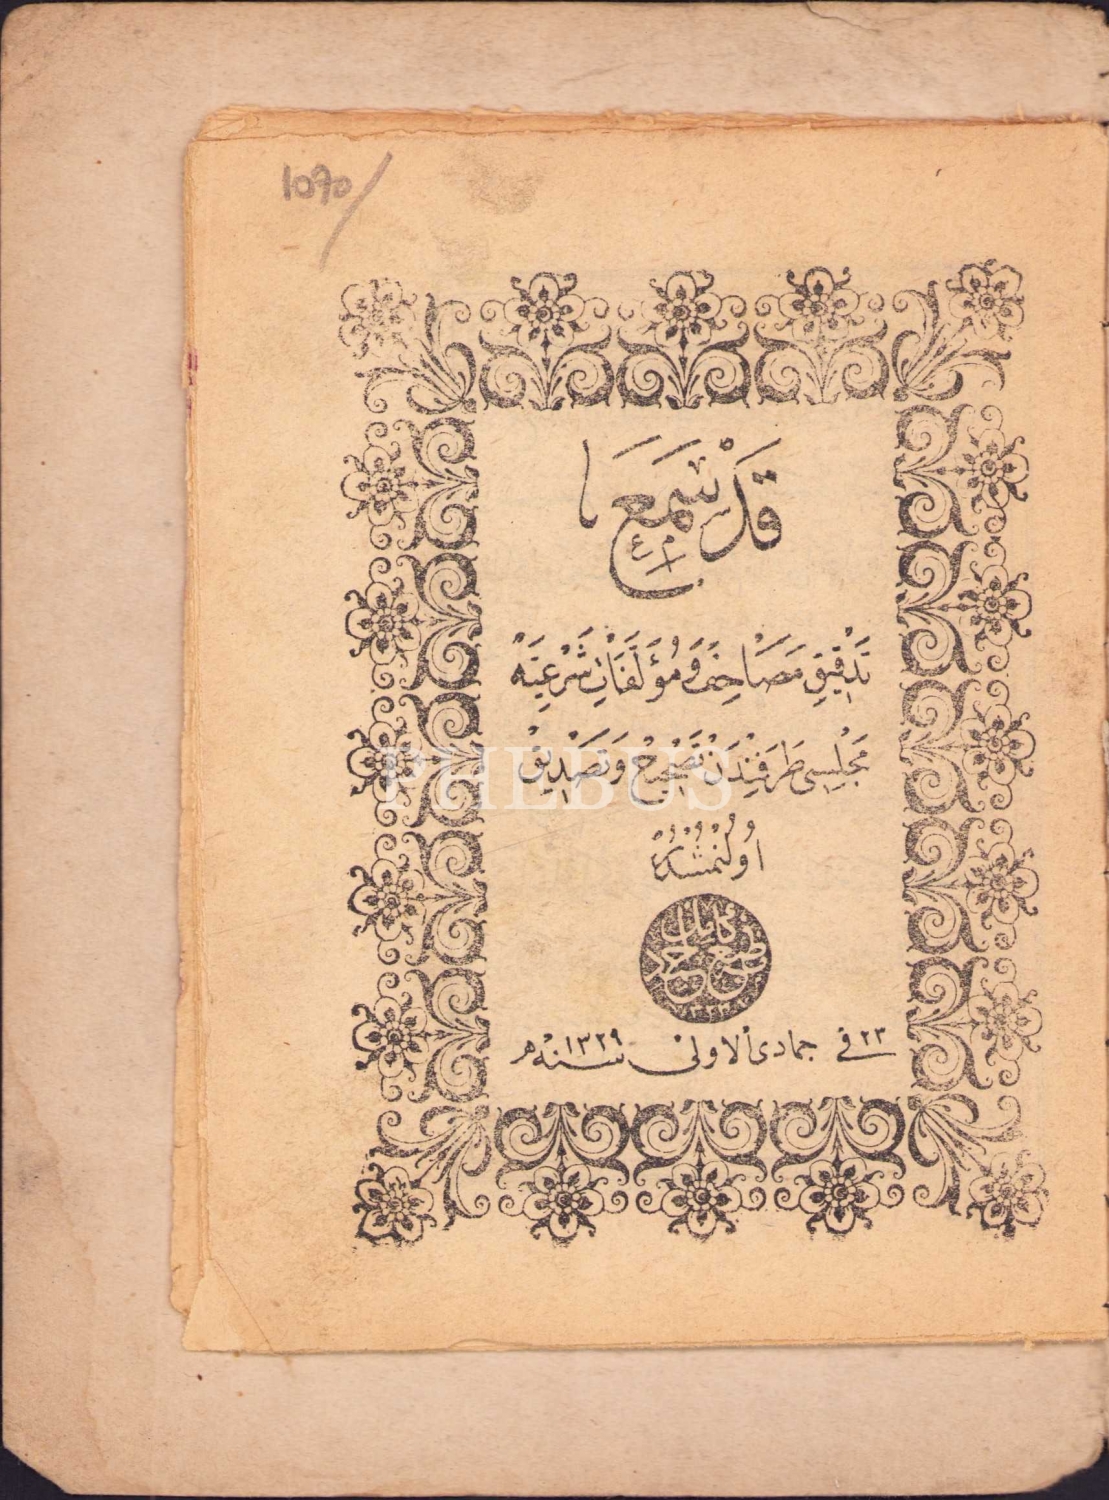 1090/
قَدْ سَمِعَ
تَدْقِيقِ مَصَاحِفْ وَ مُؤَلَّفَاتِ شَرْعِيَّهْ
مَجْلِسِی طَرَفِنْدَنْ تَصْحِیحْ وَ تَصْدِیقْ
PHEBUS
اُولُنْمُشْدُرْ
٢٣ فی جمادی الاولی سنه ١٣٢٩ هـ